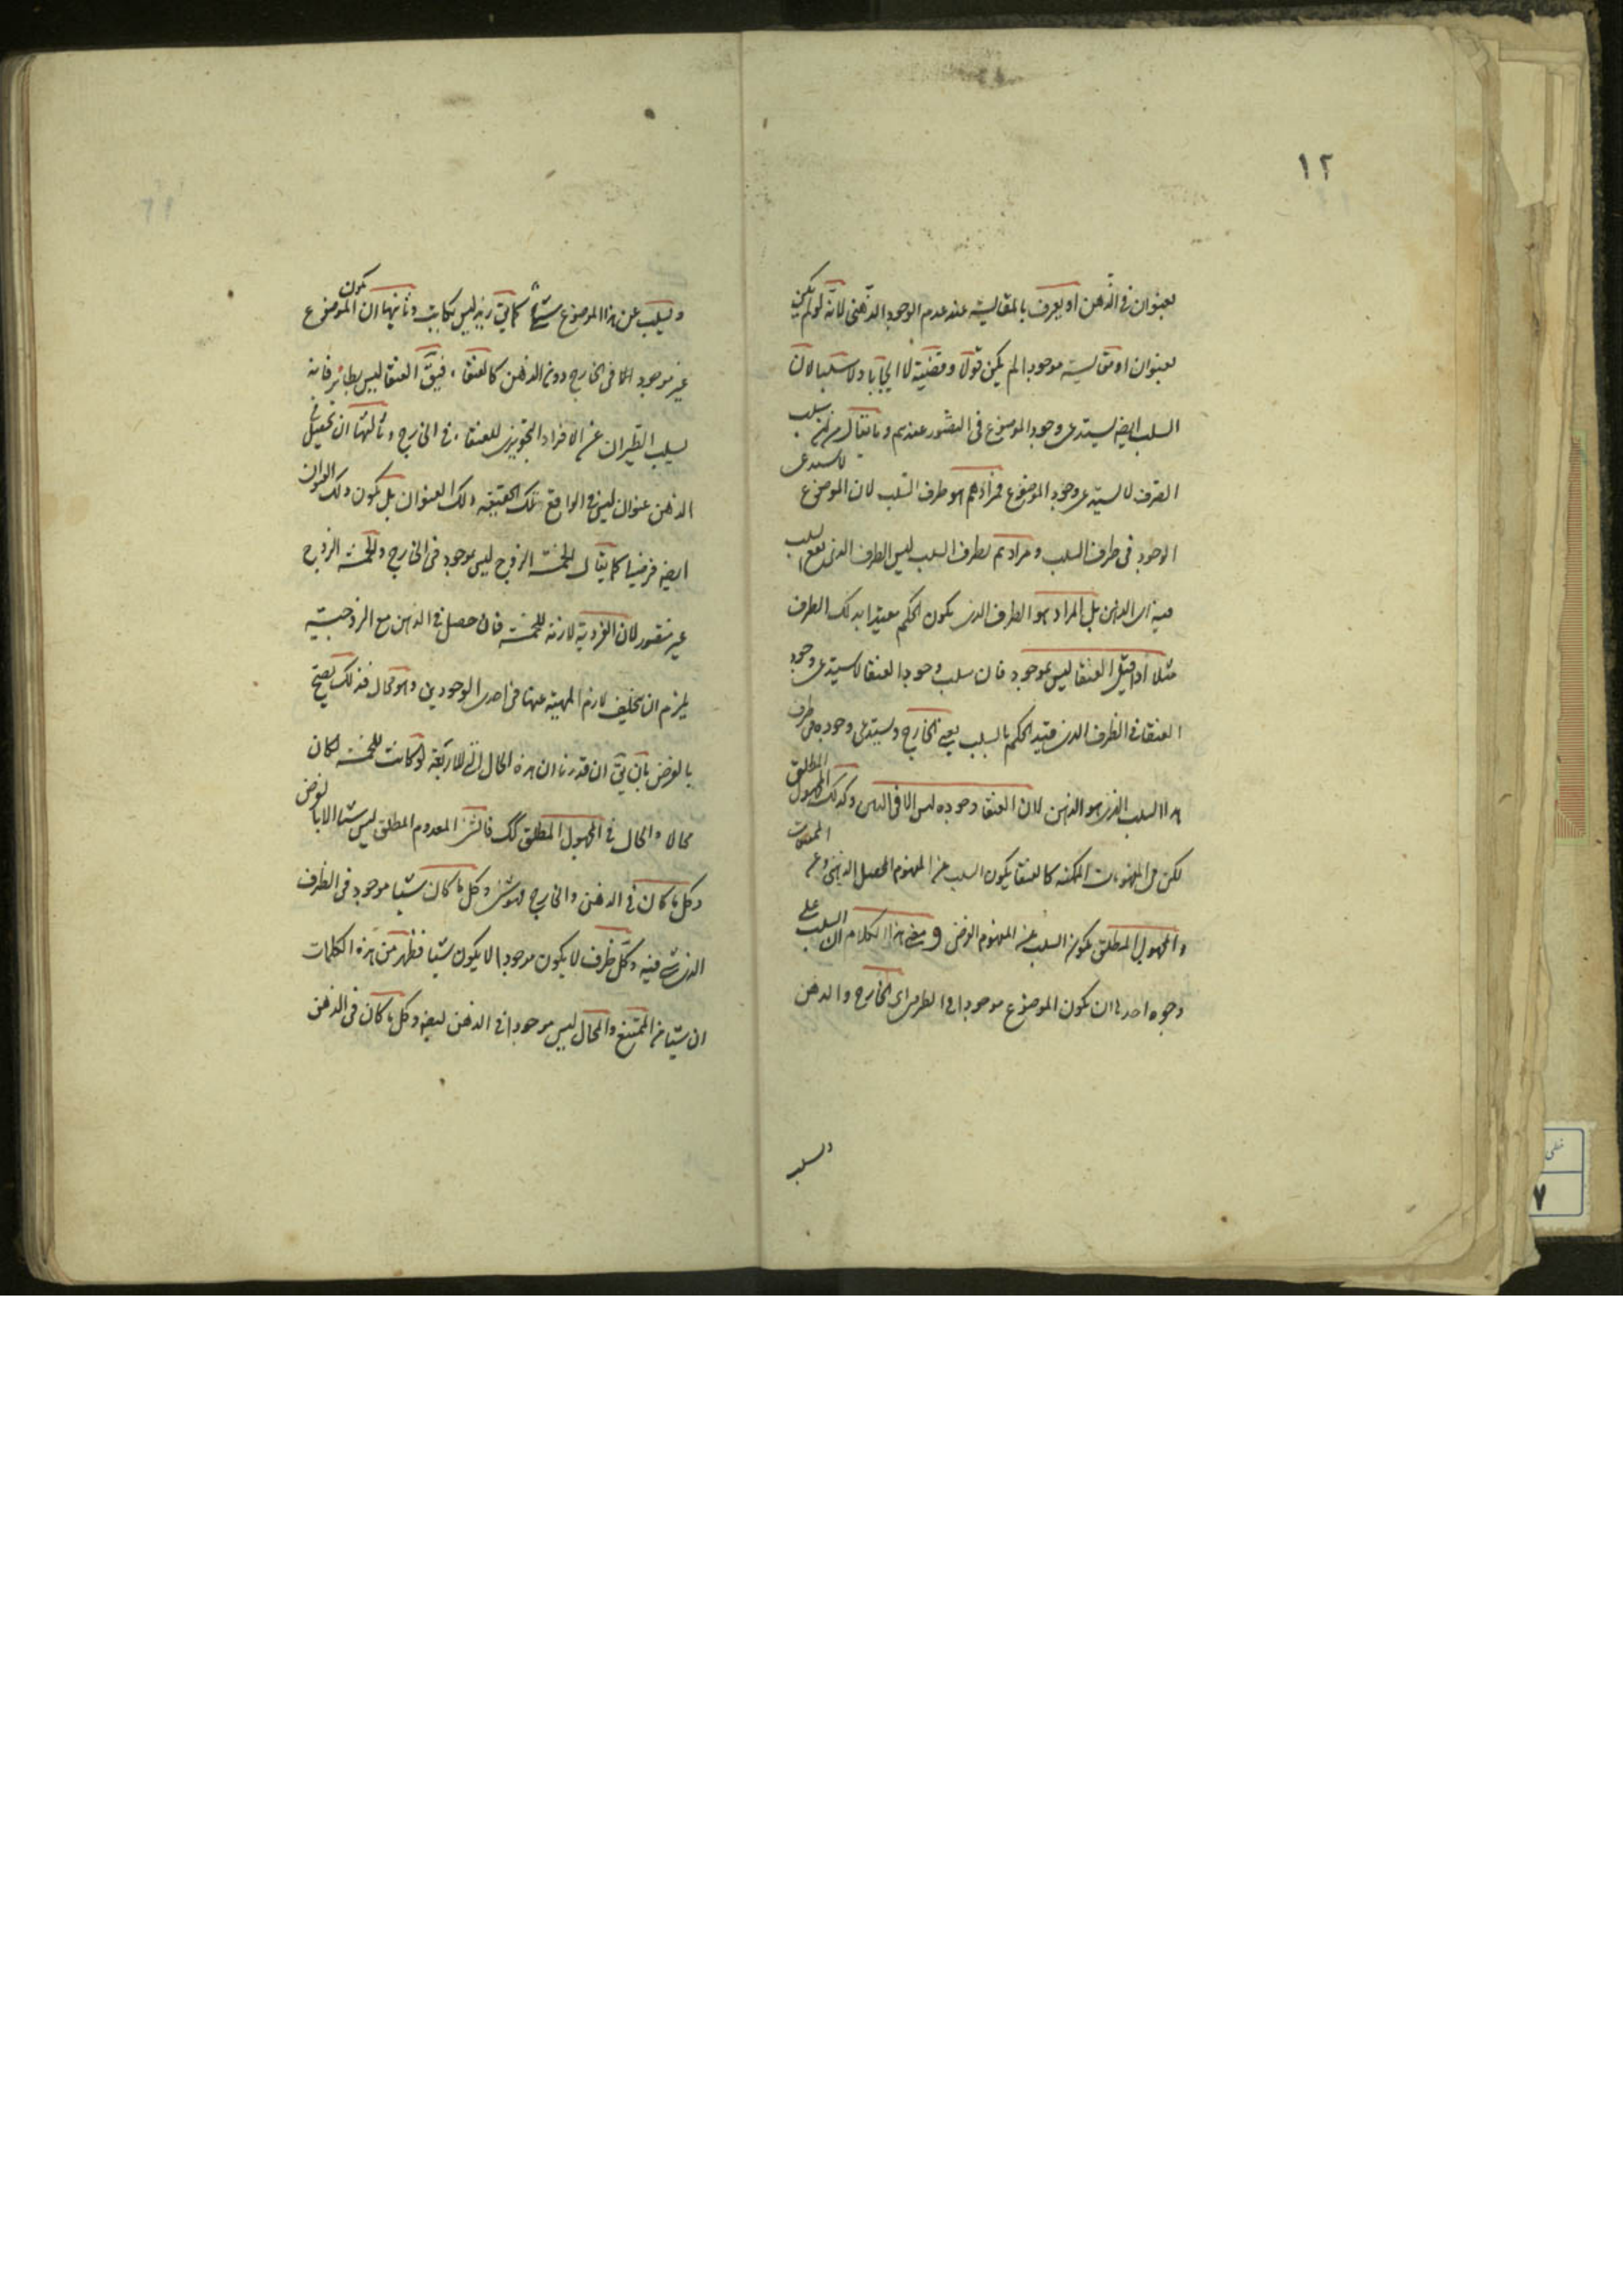 ١٢
بعنوان فى الذهن او يعرف بالمقايسة عند عدم الوجود الذهنى لانه لو لم يكن
بعنوان او مقايسة موجودا لم يكن قولا وقضية لا ايجابا ولا سلبا لان
السلب ايضا يستدعى وجود الموضوع فى التصور عندهم وما يقال من ان سلب
الصرف لا يستدعى وجود الموضوع فمرادهم هو طرف السلب لان الموضوع لا يستدعى
الوجود فى طرف السلب ومرادهم بطرف السلب ليس الطرف الذى يقع السلب
فيه اى الذهن بل المراد هو الطرف الذى يكون الحكم مقيدا بذلك الطرف
مثلا اذا قيل العنقا ليس بموجود فان سلب وجود العنقا لا يستدعى وجود
العنقا فى الظرف الذى قيد الحكم بالسلب يعنى الخارج ويستدعى وجوده فى طرف
هذا السلب الذى هو الذهن لان العنقا وجوده ليس الا فى الذهن وكذلك المجهول المطلق
لكن فى المفهومات الممكنه كالعنقا يكون السلب عن المفهوم المحصل الذهنى وعن الممتنعات
والمجهول المطلق يكون السلب عن المفهوم الفرضى و معنى هذا الكلام ان السلب على
وجوه احدها ان يكون الموضوع موجودا فى الطرفين اى الخارج والذهن
والسلب
ويسلب عن هذا الموضوع شيئا كما يق زيد ليس بكاتب وثانيها ان يكون الموضوع
غير موجود الا فى الخارج دون الذهن كالعنقاء فيق العنقا ليس بطائر فانه
يسلب الطيران عن الافراد التجويزى للعنقاء فى الخارج وثالثها ان يحصل فى
الذهن عنوان ليس فى الواقع تلك الحقيقه ذلك العنوان بل يكون ذلك العنوان
ايضا فرضيا كما يقال الخمسة الزوج ليس بموجود فى الخارج وللخمسة الزوج
غير متصور لان الفردية لازمة للخمسة فان حصل فى الذهن مع الزوجية
يلزم ان يتخلف لازم المهية عنها فى احد الوجودين وهو محال فذلك يصح
بالفرض بان يق ان قدرنا ان هذه الحال التى للاربعة لو كانت للخمسة لكان
محالا والحال فى المجهول المطلق كك فالشئ المعدوم المطلق ليس شيئا الا بالفرض
وكل ما كان فى الذهن والخارج فهو شئ وكل ما كان شيئا موجود فى الظرف
الذى شئ فيه وكل ظرف لا يكون موجودا لا يكون شيئا فظهر من هذه الكلمات
ان شيئا من الممتنع والمحال ليس موجودا فى الذهن ايضا وكل ما كان فى الذهن